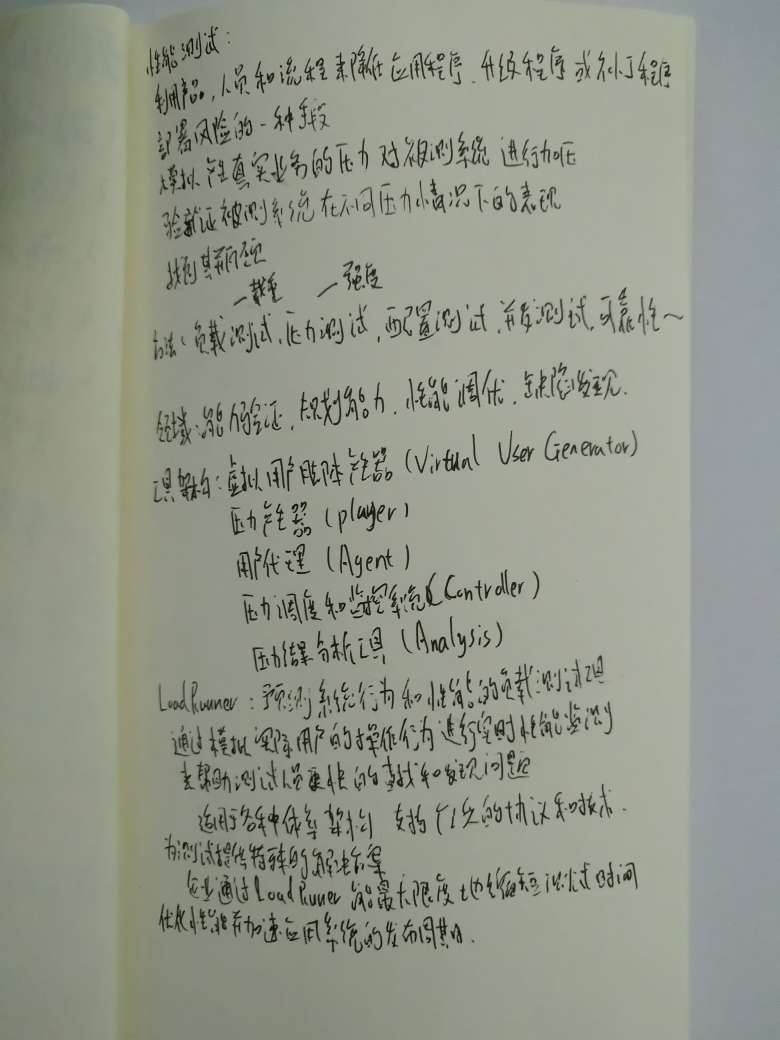 性能测试：
利用产品，人员和流程来降低应用程序、升级程序或补丁程序
部署风险的一种手段
模拟产生真实业务的压力对被测系统进行加压
验证被测系统在不同压力情况下的表现
找到其瓶颈
一载重 一强度
方法：负载测试，压力测试，配置测试，并发测试，可靠性～
领域：能力验证，规划能力，性能调优，缺陷发现．
工具架构：虚拟用户脚本产生器（Virtual User Generator）
压力产生器（player）
用户代理（Agent）
压力调度和监控系统（Controller）
压力结果分析工具（Analysis）
LoadRunner：预测系统行为和性能的负载测试工具
通过模拟实际用户的操作行为进行实时性能监测
来帮助测试人员更快的查找和发现问题
适用于各种体系架构 支持广泛的协议和技术．
为测试提供特殊的解决方案
企业通过LoadRunner 能最大限度地缩短测试时间
优化性能并加速应用系统的发布周期．